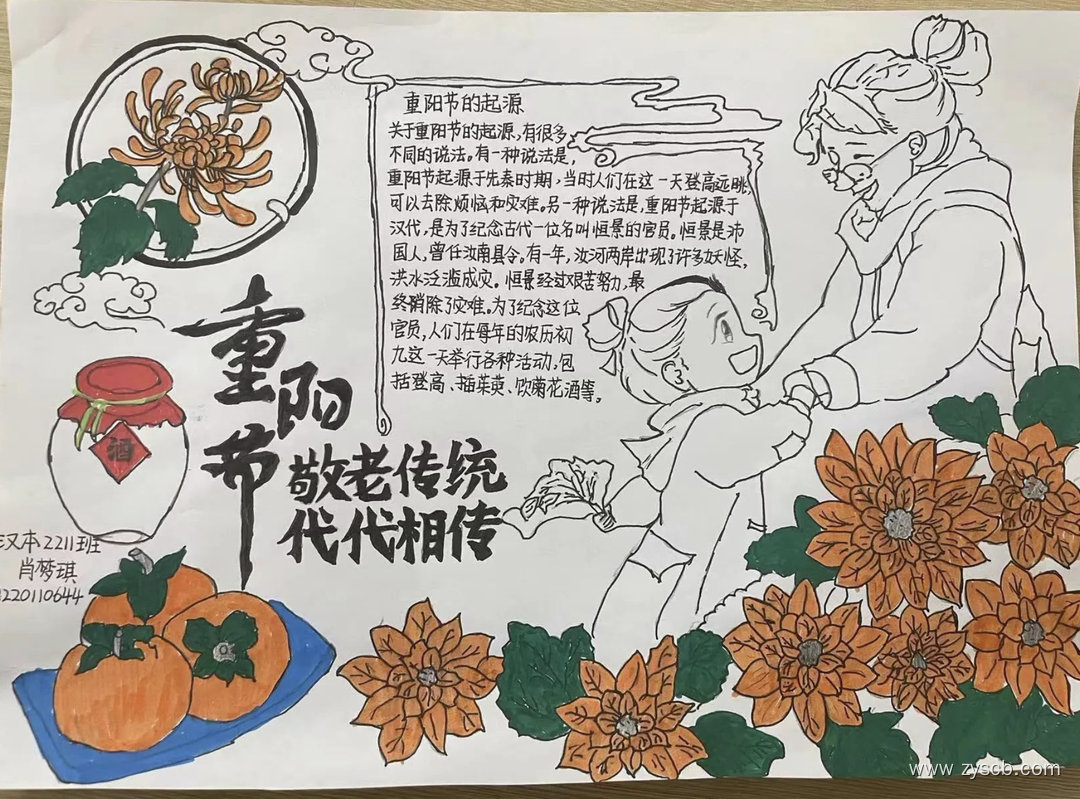 重阳节的起源
关于重阳节的起源,有很多
不同的说法。有一种说法是,
重阳节起源于先秦时期,当时人们在这一天登高远眺,
可以去除烦恼和灾难。另一种说法是,重阳节起源于
汉代,是为了纪念古代一位名叫恒景的官员。恒景是沛
国人,曾任汝南县令。有一年,汝河两岸出现了许多妖怪,
洪水泛滥成灾。恒景经过艰苦努力,最
终消除了灾难。为了纪念这位
官员,人们在每年的农历初
九这一天举行各种活动,包
括登高、插茱萸、饮菊花酒等。
重阳节
敬老传统
代代相传
酒
汉本2211班
肖梦琪
220110644
www.zyscb.com